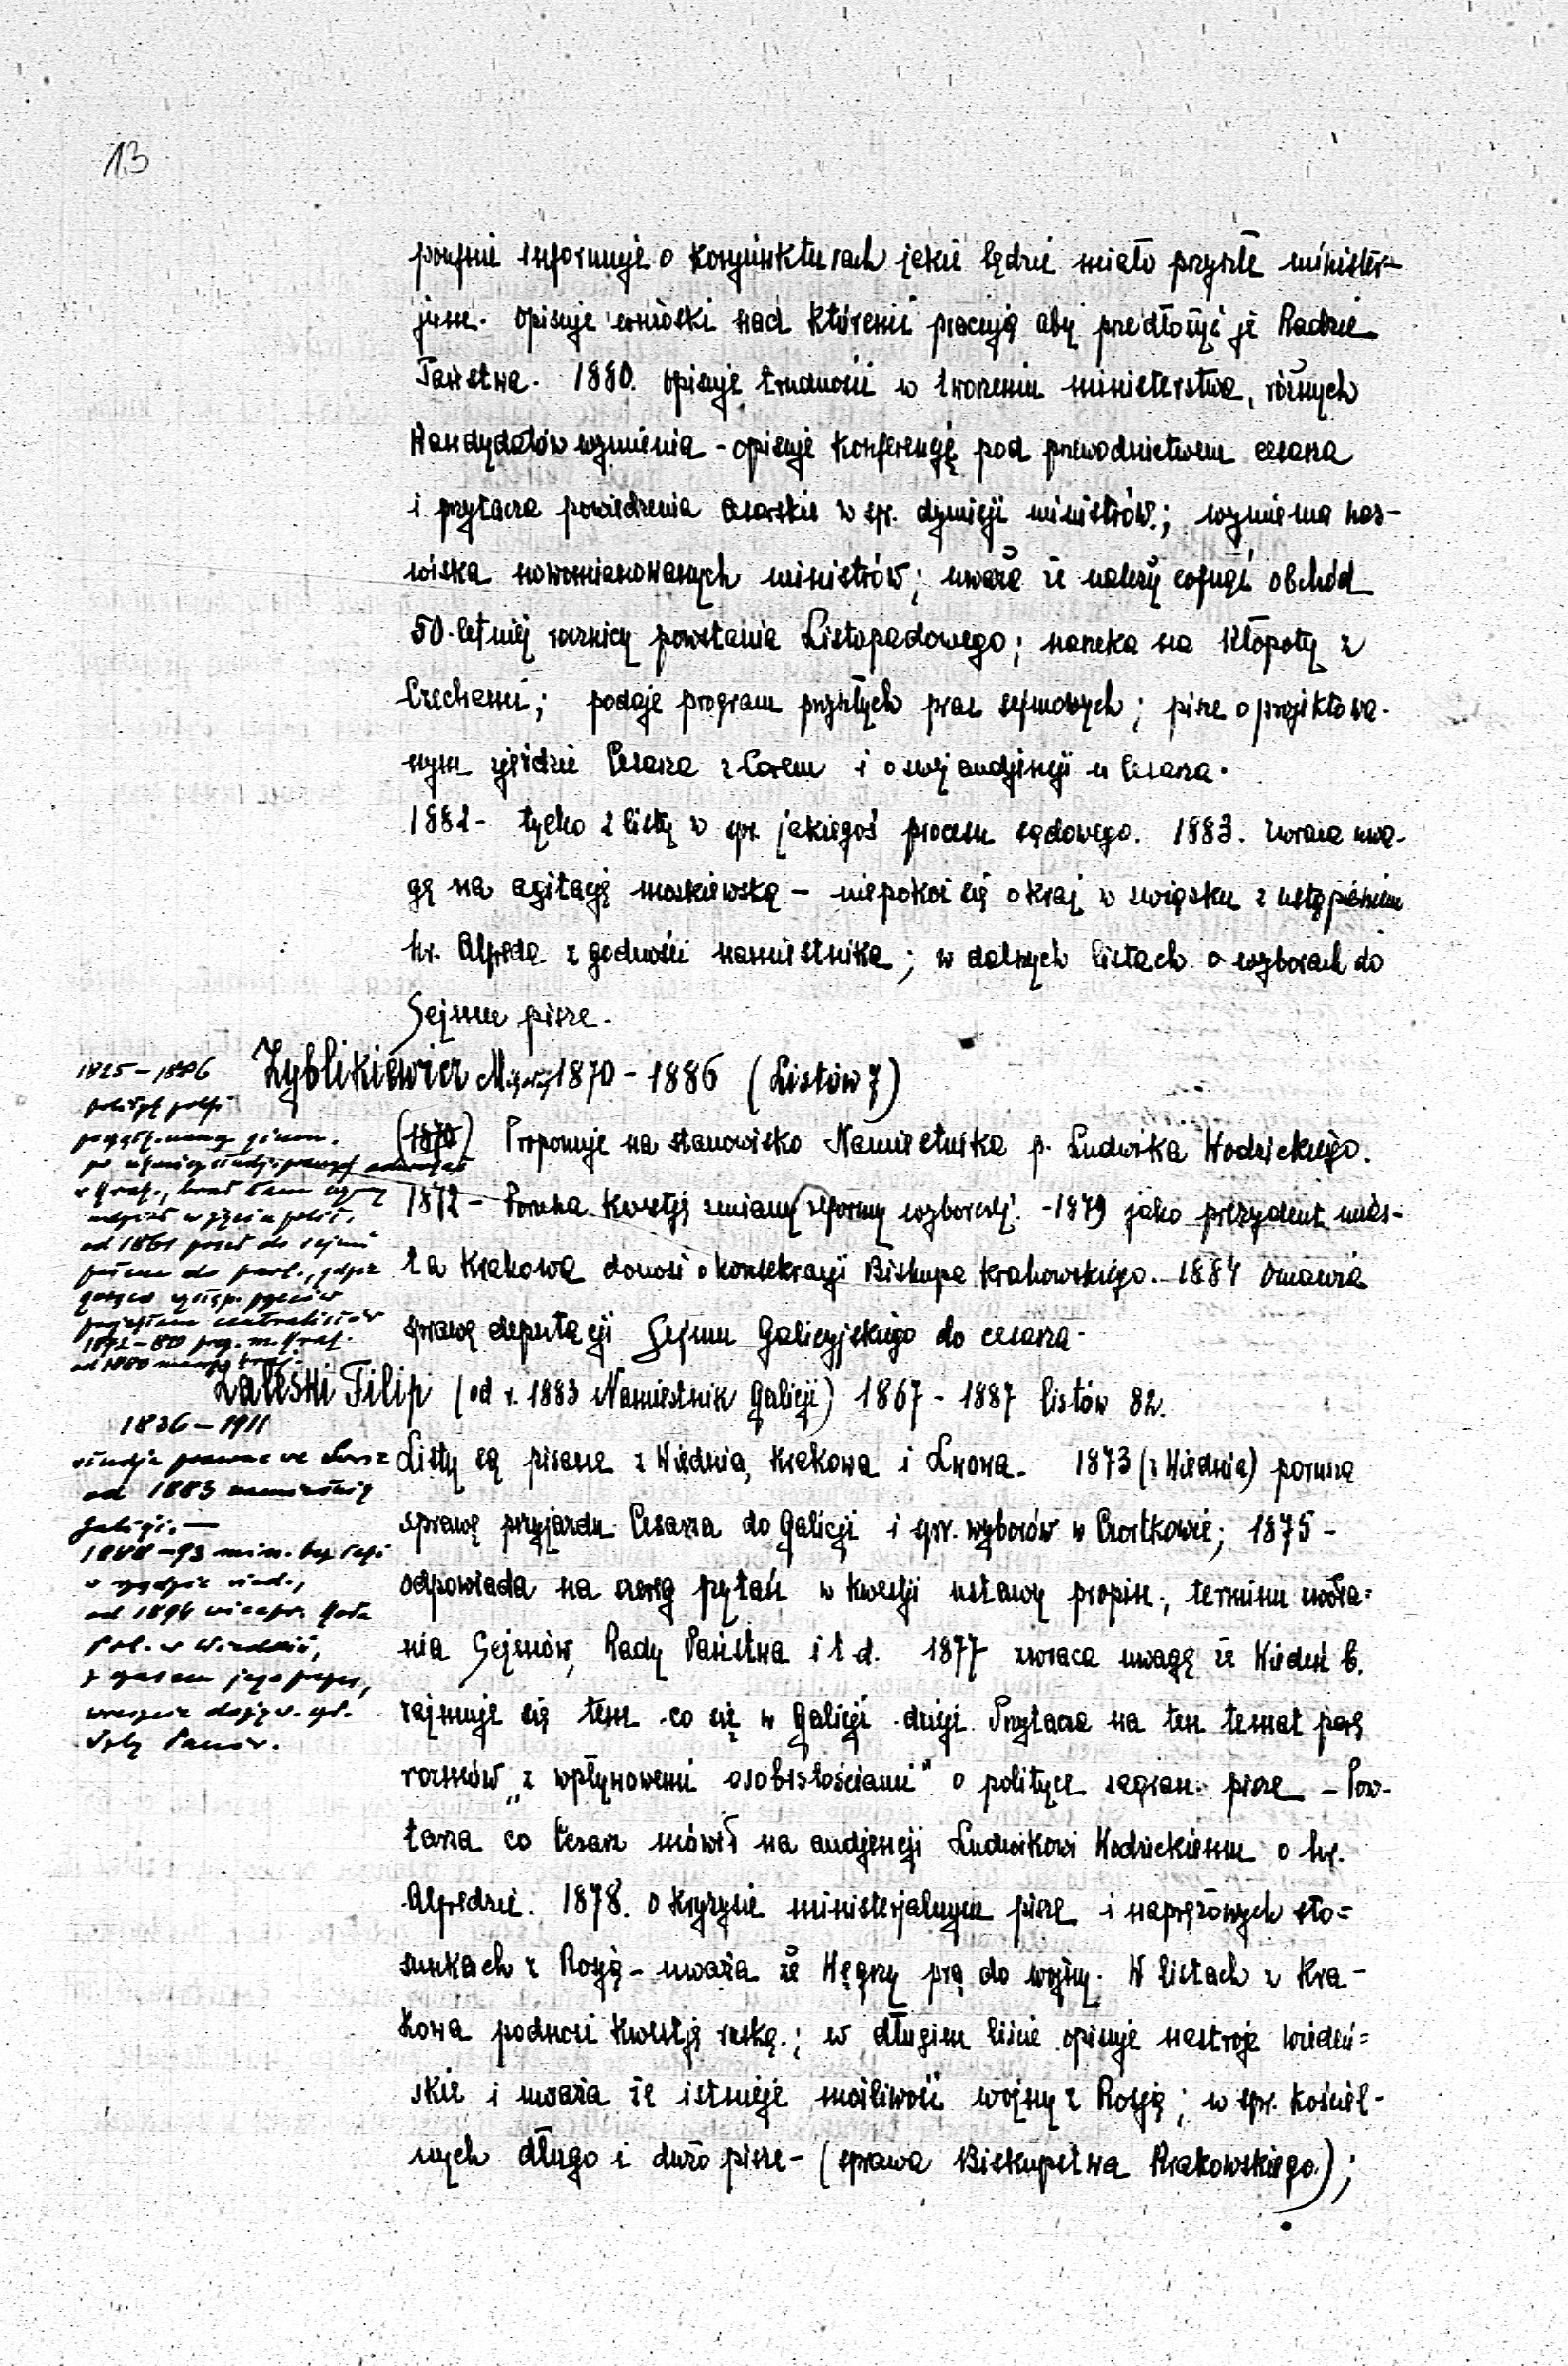 13
poufnie informuje o konjunkturach jakie będzie miało przyszłe minister-
jum. opisuje wnioski nad któremi pracują aby przedłożyć je Radzie
Państwa. 1880. opisuje trudności w tworzeniu ministerstwa, różnych
Kandydatów wymienia - opisuje konferencję pod przewodnictwem cesarza
i przytacza powiedzenia cesarskie w spr. dymisji ministrów; wymienia naz-
wiska nowomianowanych ministrów; uważa że należy cofnąć obchód
50-letniej rocznicy powstania Listopadowego; narzeka na kłopoty z
Czechami; podaje program przyszłych prac sejmowych; pisze o projektowa-
nym zjeździe Cesarza z Carem i o swej audjencji u Cesarza.
1882 - tylko 2 listy w spr. jakiegoś procesu sądowego. 1883. zwraca uwa-
gę na agitację moskiewską - niepokoi się o kraj w związku z ustąpieniem
hr. Alfreda z godności namiestnika; w dalszych listach o wyborach do
Sejmu pisze.
Zyblikiewicz Mikołaj 1870 - 1886 (Listów 7)
(1870) Proponuje na stanowisko Namiestnika p. Ludwika Wodzickiego.
1872 - Porusza kwestję zmiany reformy wyborczej. - 1879 jako prezydent mias-
ta Krakowa donosi o konsekracji Biskupa Krakowskiego. 1884 omawia
sprawę deputacji Sejmu Galicyjskiego do cesarza.
1825 - 1886
polityk polsk.
po
w Krak., brał tam
udział w życiu polit.
od 1861 poseł do sejmu
potem do parl., gdzie
centralistów
od 1880 marsz. kraj.
Zaleski Filip (od r. 1883 Namiestnik Galicji) 1867 - 1887 listów 82.
Listy są pisane z Wiednia, Krakowa i Lwowa. 1873 (z Wiednia) porusza
sprawę przyjazdu Cesarza do Galicji i spr. wyborów w Czortkowie; 1875 -
odpowiada na szereg pytań w kwestji ustawy propin., terminu zwoła=
nia Sejmów, Rady Państwa i t. d. 1877 zwraca uwagę że Wiedeń b.
zajmuje się tem co się w Galicji dzieje. Przytacza na ten temat parę
rozmów „z wpływowemi osobistościami" o polityce zagran. pisze - Pow-
tarza co Cesarz mówił na audjencji Ludwikowi Wodzickiemu o hr.
Alfredzie. 1878. o kryzysie ministerjalnym pisze i naprężonych sto=
sunkach z Rosją - uważa że Węgry prą do wojny. W listach z Kra-
kowa podnosi kwestję ruską; w długim liście opisuje nastroje wiedeń=
skie i uważa że istnieje możliwość wojny z Rosją; w spr. kościel-
nych długo i dużo pisze - (sprawa Biskupstwa Krakowskiego);
1836 - 1911
studja prawne we Lwow.
od 1883 namiestnik
Galicji. -
1888 - 93 min. bez teki
w rządzie wied.,
od 1894 viceprz. Koła
Pol. w Wiedniu,
z czasem jego prezes,
wreszcie dożyw. czł.
Izby Panów.